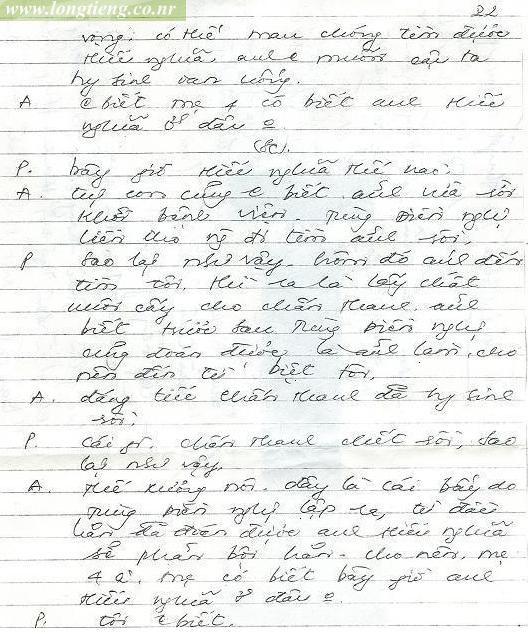 www.longtieng.co.nr
22
vọng, có thể mau chóng tìm được
Hiếu nghĩa anh e muốn cậu ta
hy sinh oan uổng.
A e biết mẹ 4 có biết anh Hiếu
nghĩa ở đâu e.
(SC).
P. bây giờ Hiếu nghĩa thế nào.
A. tụi con cũng e biết anh vừa rời
khỏi bệnh viện. Phùng Điên nghị
liền cho ng đi tìm anh rồi.
P sao lại như vậy. hôm đó anh đến
tìm tôi, thì ra là lấy chất
nuôi cấy cho chấn Thanh anh
biết trước sau Phùng Điên nghị
cũng đoán được là anh làm, cho
nên đến từ biệt tôi.
A. đáng tiếc chấn Thanh đã hy sinh
rồi.
P. cái gì. chấn Thanh chết rồi, sao
lại như vậy.
A. thiếu xưởng nói. đây là cái bẫy do
Phùng Điên nghị lập ra, từ đầu
hắn đã đoán được anh Hiếu nghĩa
sẽ phản bội hắn. cho nên, mẹ
4 à, mẹ có biết bây giờ anh
Hiếu nghĩa ở đâu e.
P. tôi e biết.